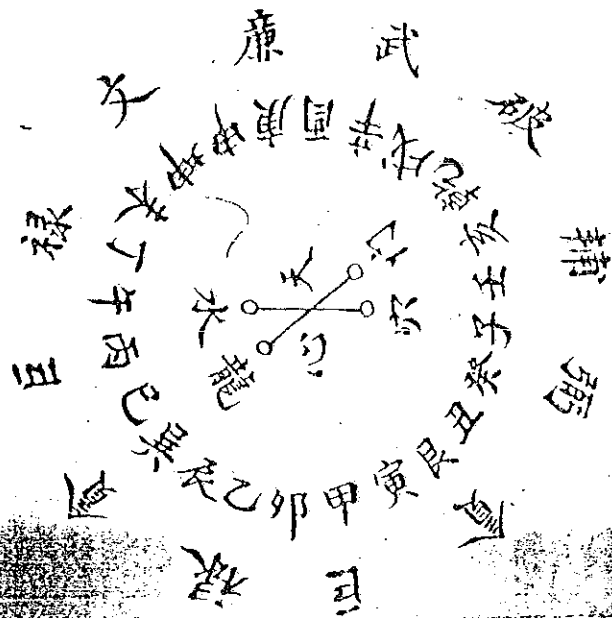 廉武破輔弼貪巨祿貪巨祿文
壬子癸丑艮寅甲卯乙辰巽巳丙午丁未坤申庚酉辛戌乾亥
天心
水
穴
龍